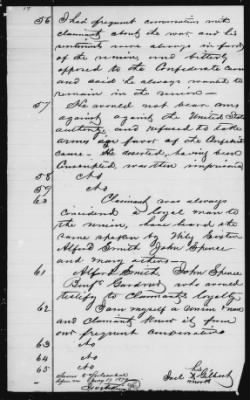 56 I had frequent conversations with
claimant, about the war, and his
sentiments were always in favor
of the union, and bitterly
opposed to the Confederate cause
and said he always wanted to
remain in the union—
57 He would not bear arms
against against the United States
authority and refused to take
arms in favor of the Confed
cause. He asserted, having been
Conscripted was then imprisoned
58 No
59 No
60 Claimant was always
considered a loyal man to
the union, have heard the
same spoken by Wily Foster
Alford Smith John Spence
and many others—
61 Alford Smith, John Spence
Benj Goodwin who would
testify to Claimants loyalty
62 I am myself a Union man
and Claimant knew it from
our frequent conversations
63 No
64 No
65 No
his
Joel X Gilbert
mark